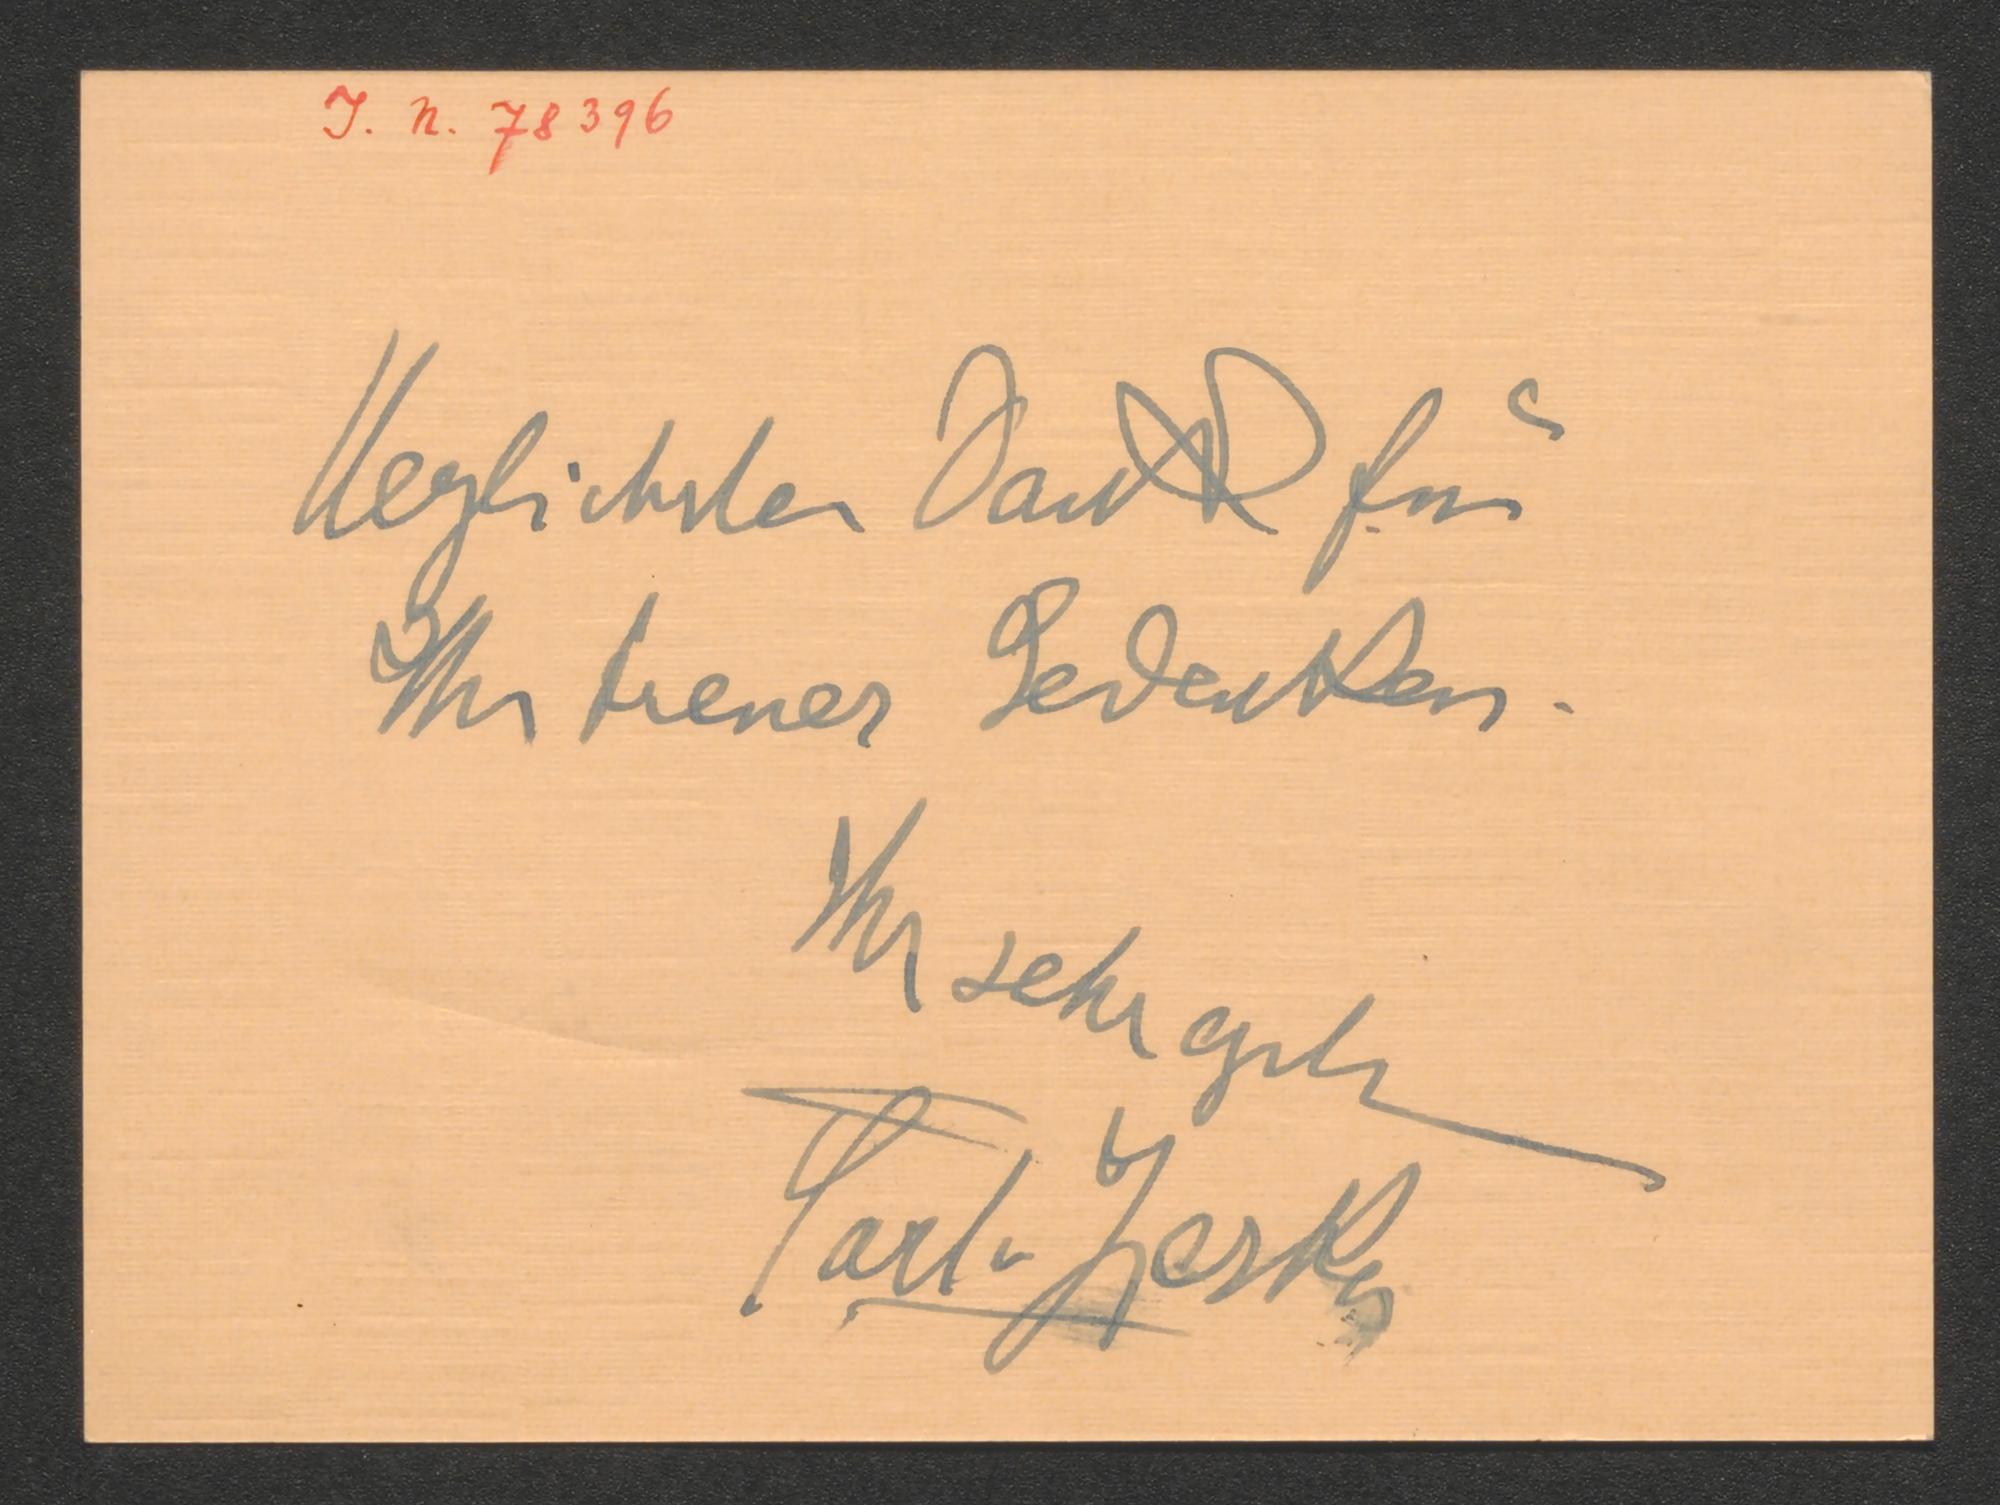 I. N. 78396
Herzlichsten Dank für
Ihr treues Gedenken.
Ihr sehr erg.
Karl